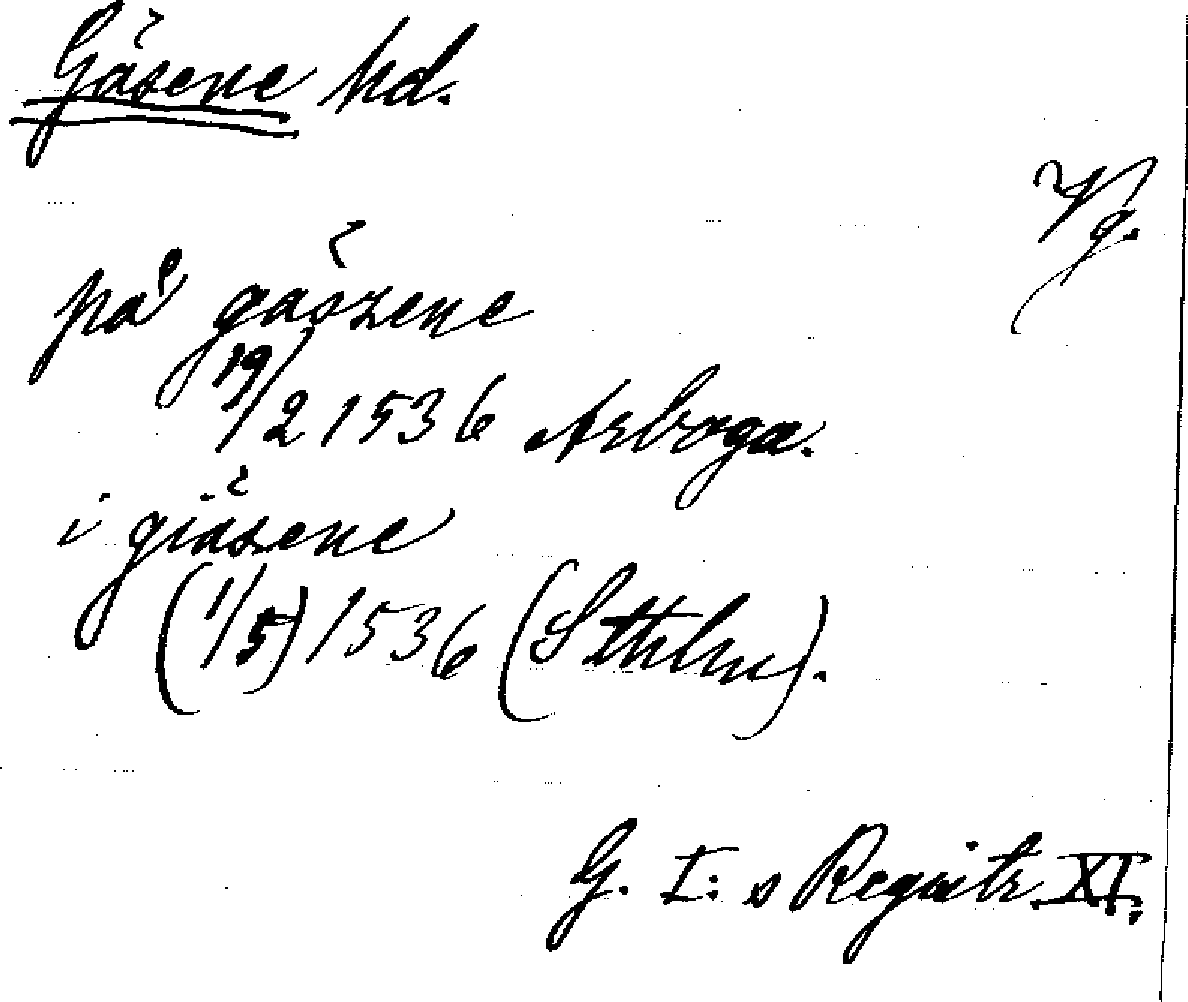 Gäsene hd.
Vg.
på gäszene
19/2 1536 Arboga.
i giäsene
(1/5) 1536 (Sthlm).
G. I:s Registr. XI.